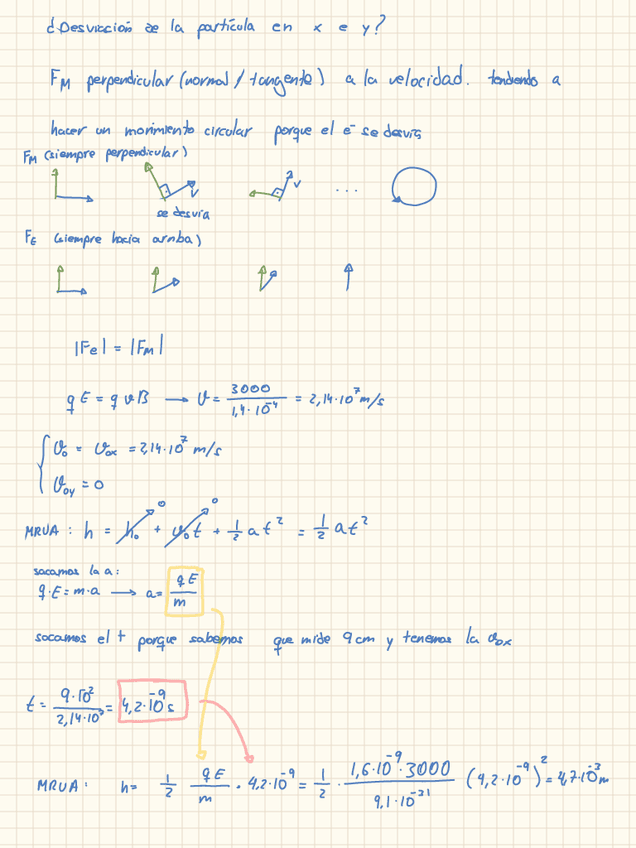 ¿Desviación de la partícula en x e y?
F_M perpendicular (normal/tangente) a la velocidad. tendiendo a
hacer un movimiento circular porque el e⁻ se desvía
F_M (siempre perpendicular)
v
v
...
se desvía
F_E (siempre hacia arriba)
|Fe| = |F_M|
qE = qvB → v = 3000 / 1,4·10⁻⁴ = 2,14·10⁷ m/s
v₀ = v₀ₓ = 2,14·10⁷ m/s
v₀y = 0
MRUA: h = h₀ + v₀t + 1/2 at² = 1/2 at²
0
0
sacamos la a:
q·E = m·a → a = qE/m
sacamos el t porque sabemos que mide 9cm y tenemos la v₀ₓ
t = 9·10⁻² / 2,14·10⁷ = 4,2·10⁻⁹ s
MRUA: h = 1/2 qE/m · 4,2·10⁻⁹ = 1/2 · 1,6·10⁻⁹·3000 / 9,1·10⁻³¹ (4,2·10⁻⁹)² = 4,7·10⁻³ m